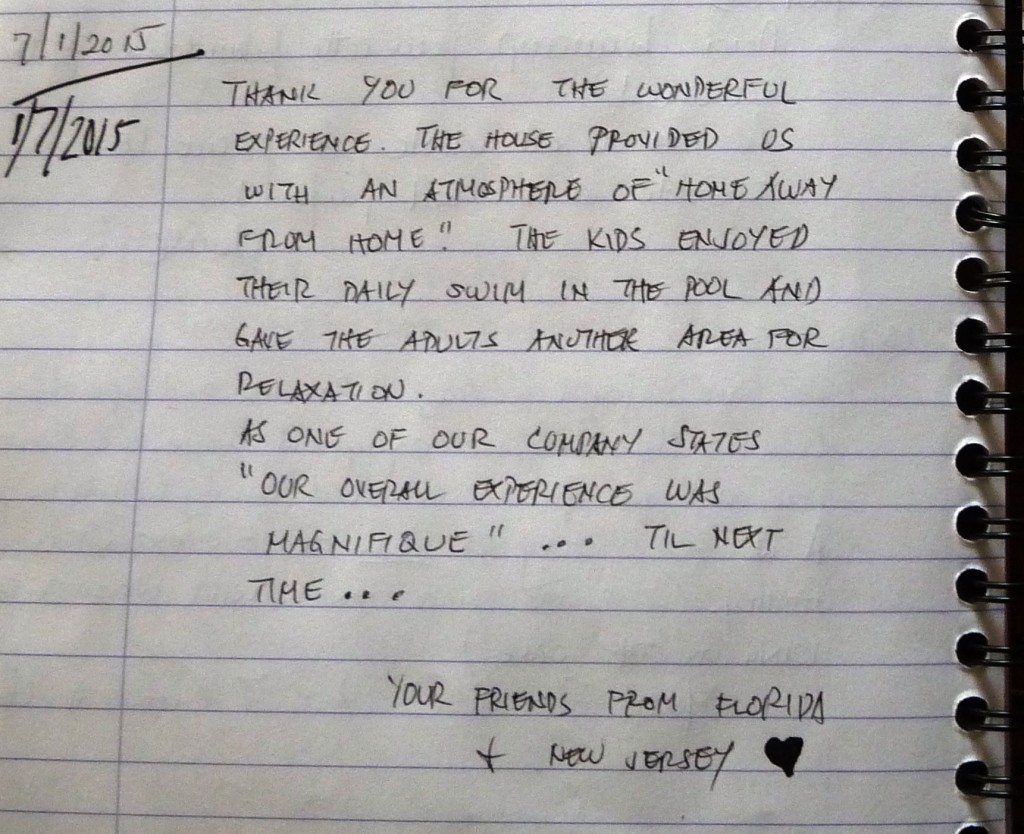 7/1/2015
1/7/2015
THANK YOU FOR THE WONDERFUL
EXPERIENCE. THE HOUSE PROVIDED US
WITH AN ATMOSPHERE OF "HOME AWAY
FROM HOME". THE KIDS ENJOYED
THEIR DAILY SWIM IN THE POOL AND
GAVE THE ADULTS ANOTHER AREA FOR
RELAXATION.
AS ONE OF OUR COMPANY STATES
"OUR OVERALL EXPERIENCE WAS
MAGNIFIQUE" ... TIL NEXT
TIME ...
YOUR FRIENDS FROM FLORIDA
+ NEW JERSEY ♥